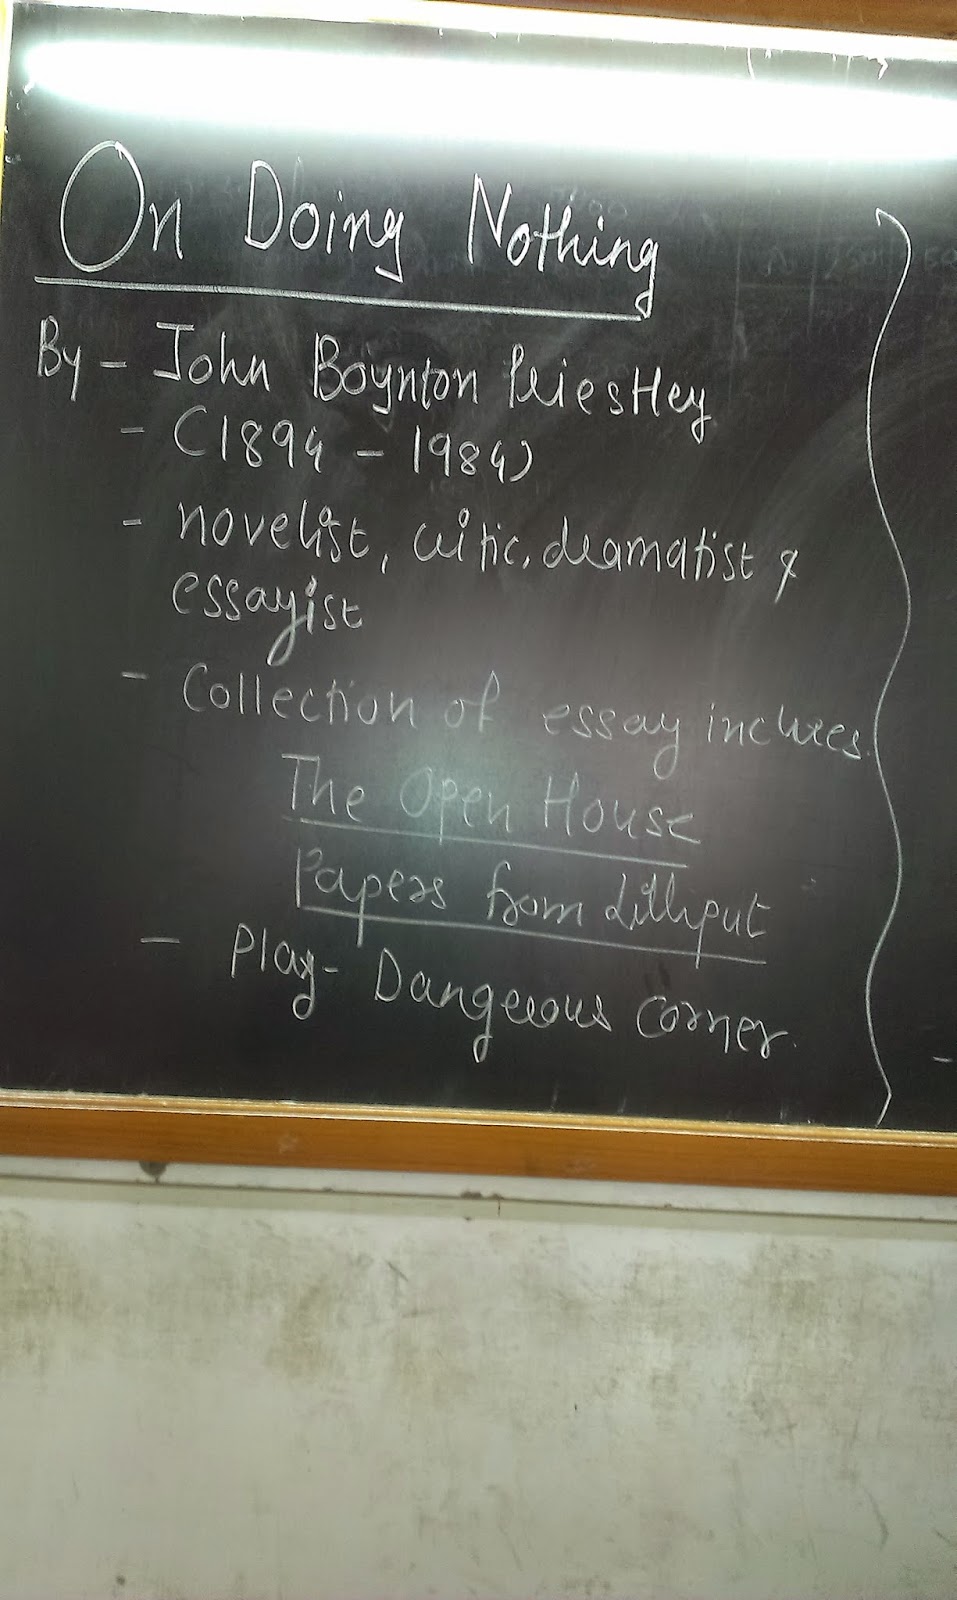 On Doing Nothing
By - John Boynton Priestley
- (1894 - 1984)
- novelist, critic, dramatist &
essayist
- Collection of essay inclues.
The Open House
Papers from Lilliput
- Play - Dangerous corner.